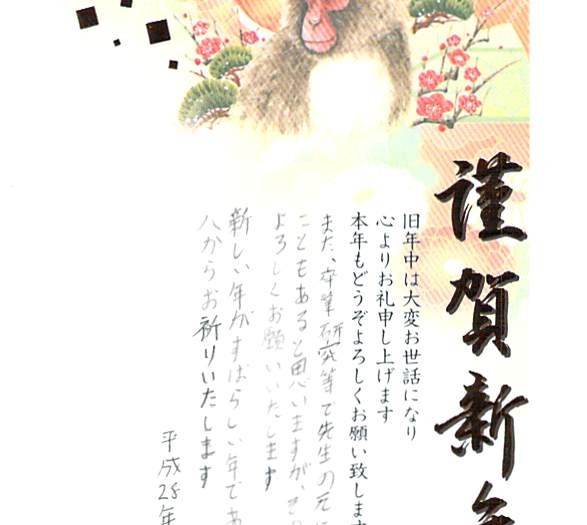 謹賀新年
旧年中は大変お世話になり
心よりお礼申し上げます
本年もどうぞよろしくお願い致します
また、卒業研究等で先生の元に
こともあると思いますが、その
よろしくお願いいたします
新しい年がすばらしい年であ
心からお祈りいたします
平成28年